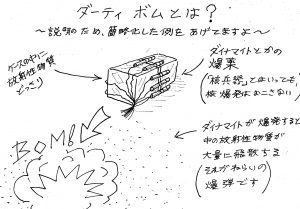 ダーティ ボムとは?
～説明のため、簡略化した例をあげてますよ～
ケースの中に
放射性物質
どっさり
ダイナマイトとかの
爆薬
「核兵器」とはいっても、
核爆発はおこさない
BOM!
ダイナマイトが爆発すると
中の放射性物質が
大量に飛散する
それがねらいの
爆弾です